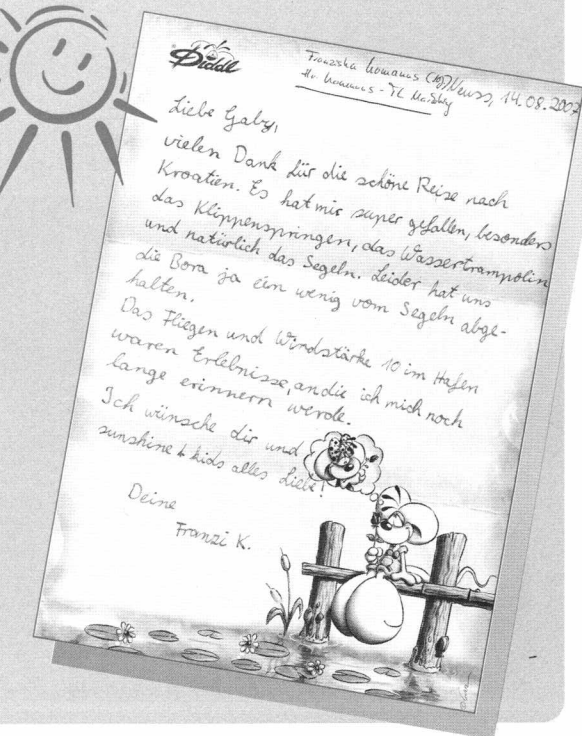 Diddl
Franziska Neuss, 14.08.2007
Hr. - TL
Liebe Gaby,
vielen Dank für die schöne Reise nach
Kroatien. Es hat mir super gefallen, besonders
das Klippenspringen, das Wassertrampolin
und natürlich das Segeln. Leider hat uns
die Bora ja ein wenig vom Segeln abge-
halten.
Das Fliegen und Windstärke 10 im Hafen
waren Erlebnisse, an die ich mich noch
lange erinnern werde.
Ich wünsche dir und
sunshine 4 kids alles Liebe!
Deine
Franzi K.